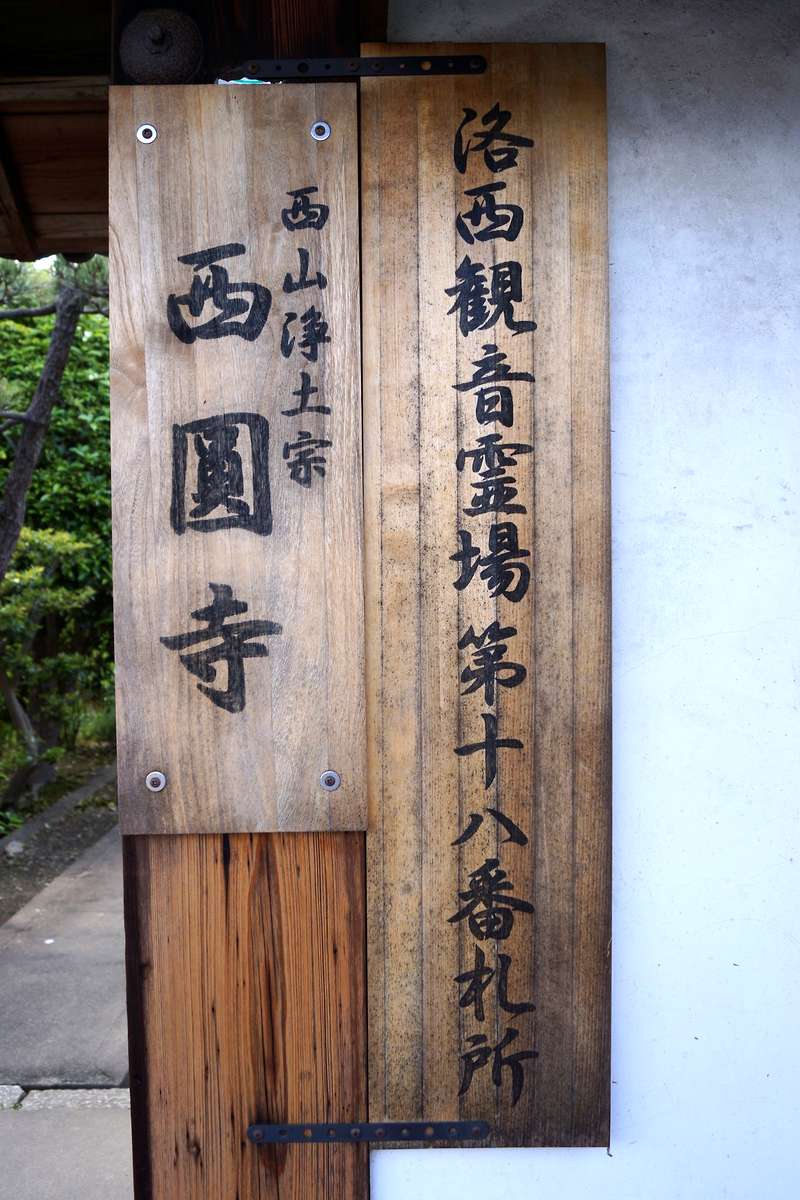 洛西観音霊場第十八番札所
西山浄土宗
西圓寺